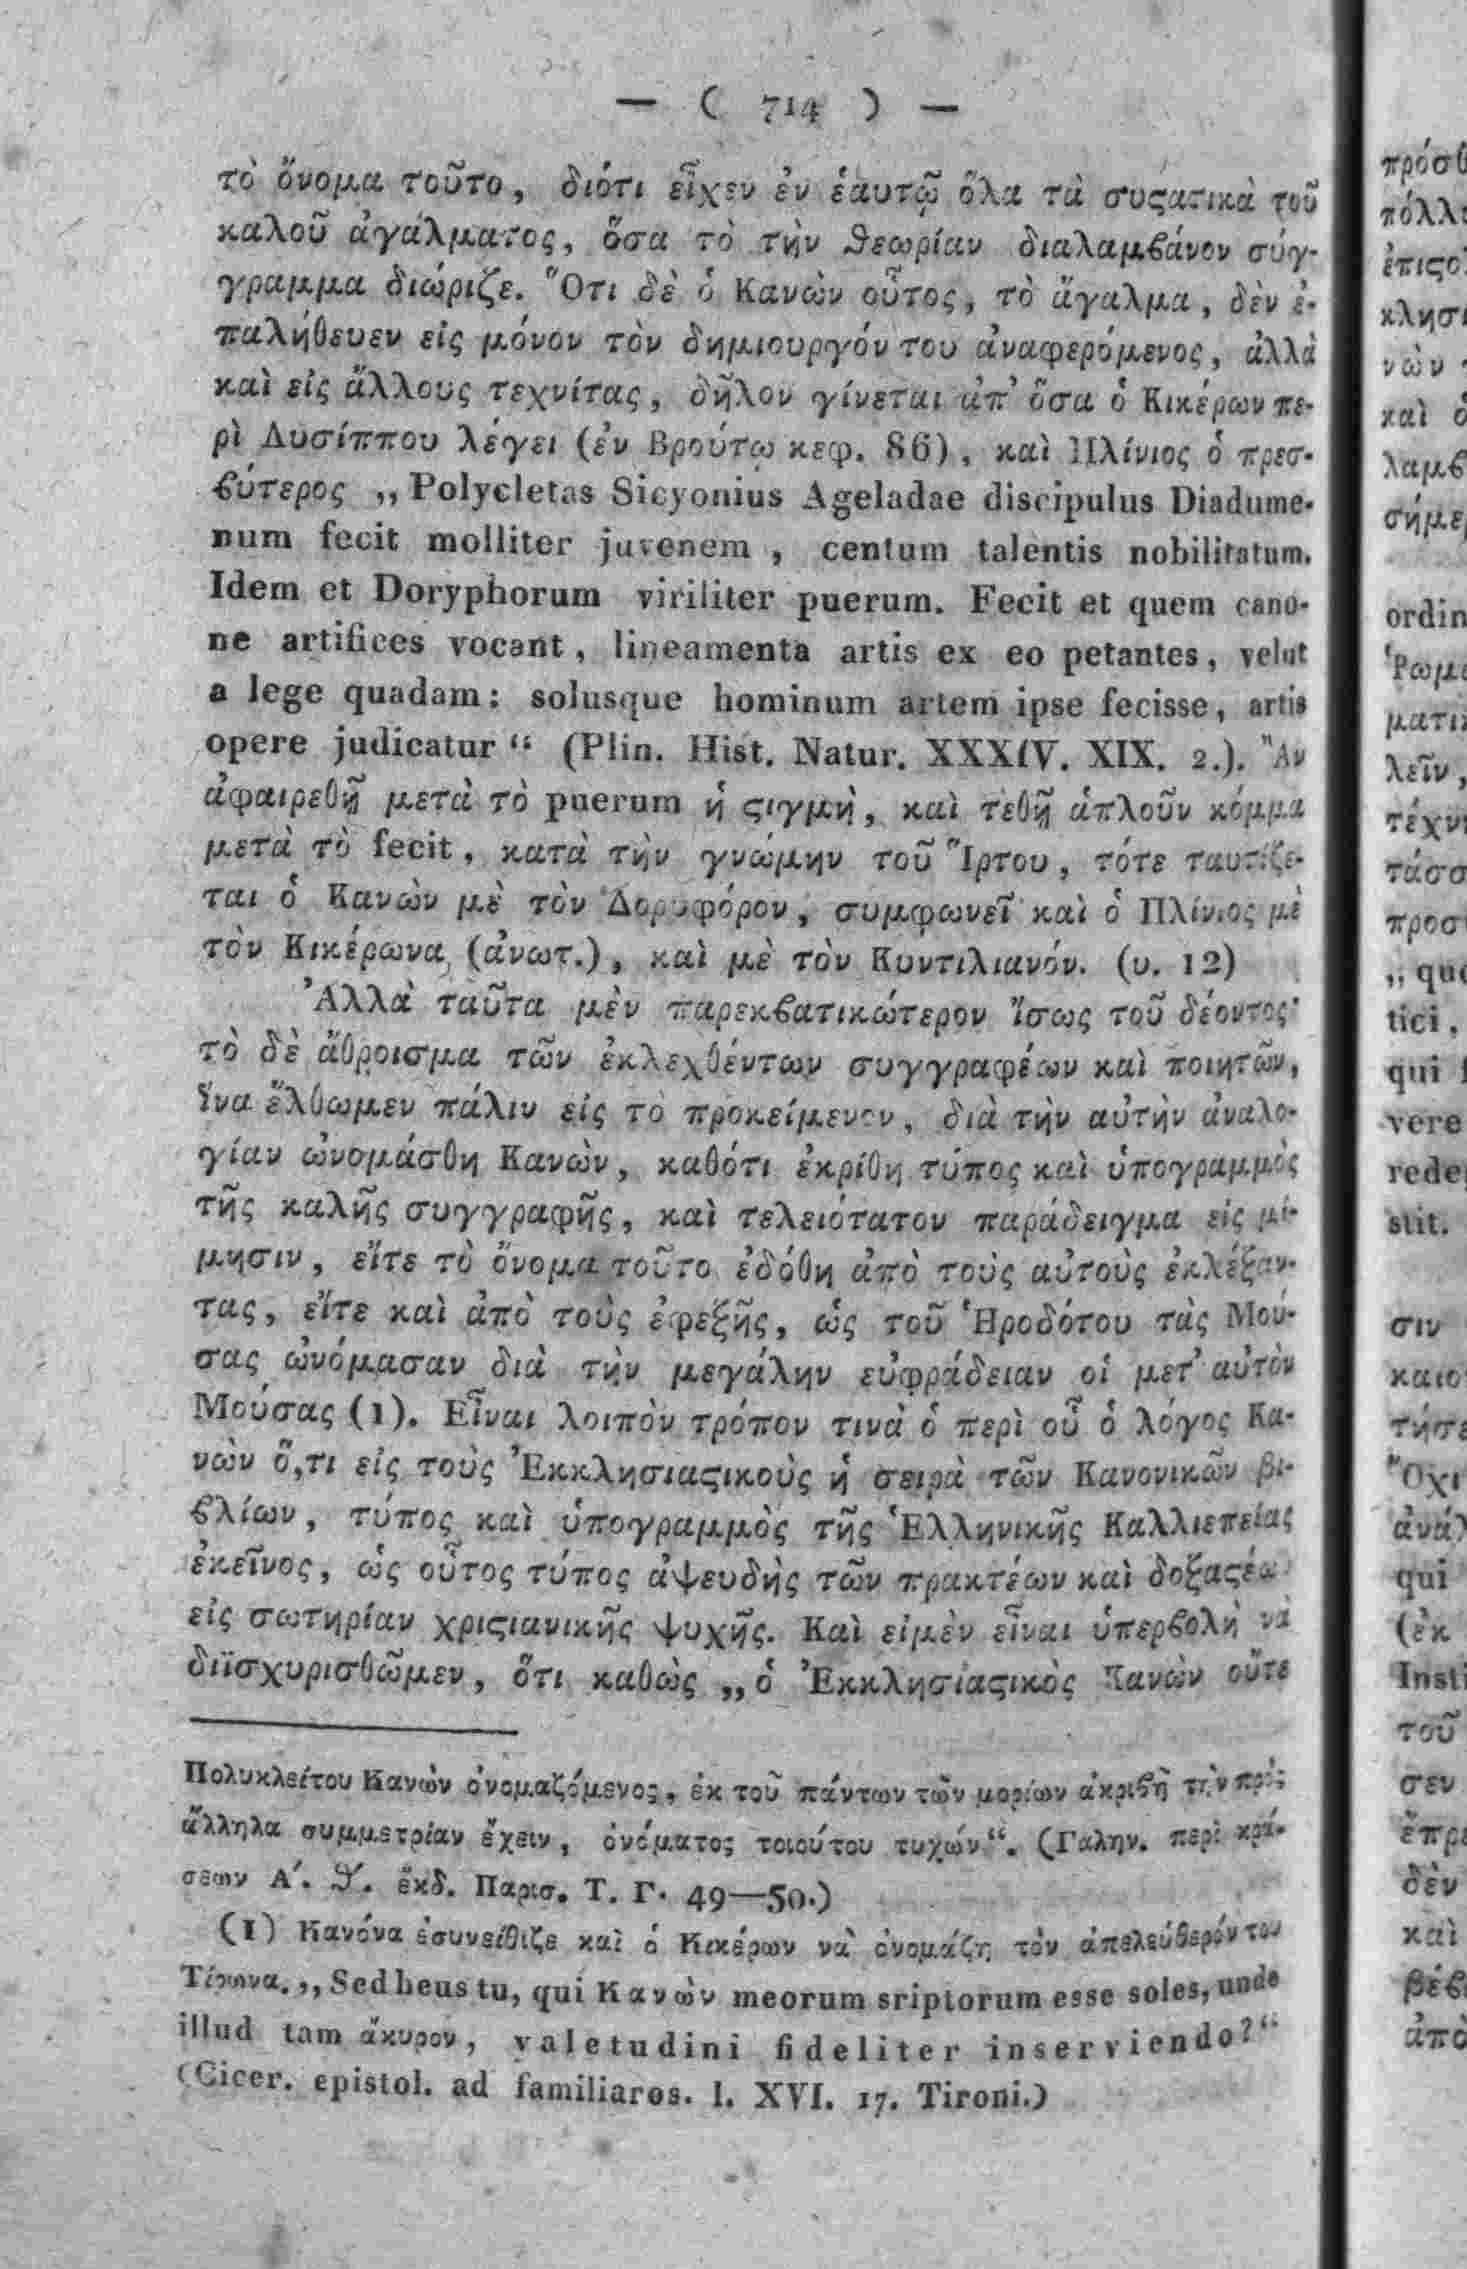 — ( 714 ) —
τὸ ὄνομα τοῦτο, διότι εἶχεν ἐν ἑαυτῷ ὅλα τὰ συϛατικὰ τοῦ
καλοῦ ἀγάλματος, ὅσα τὸ τὴν ϑεωρίαν διαλαμϐάνον σύγ-
γραμμα διώριζε. Ὅτι δὲ ὁ Κανὼν οὗτος, τὸ ἄγαλμα, δὲν ἐ-
παλήθευεν εἰς μόνον τὸν δημιουργόν του ἀναφερόμενος, ἀλλὰ
καὶ εἰς ἄλλους τεχνίτας, δῆλον γίνεται ἀπ' ὅσα ὁ Κικέρων πε-
ρὶ Λυσίππου λέγει (ἐν Βρούτῳ κεφ. 86), καὶ Πλίνιος ὁ πρεσ-
ϐύτερος „Polycletas Sicyonius Ageladae discipulus Diadume-
num fecit molliter juvenem, centum talentis nobilitatum.
Idem et Doryphorum viriliter puerum. Fecit et quem cano-
ne artifices vocant, lineamenta artis ex eo petantes, velut
a lege quadam: solusque hominum artem ipse fecisse, artis
opere judicatur“ (Plin. Hist. Natur. XXXIV. XIX. 2.). Ἂν
ἀφαιρεθῇ μετὰ τὸ puerum ἡ ϛιγμὴ, καὶ τεθῇ ἁπλοῦν κόμμα
μετὰ τὸ fecit, κατὰ τὴν γνώμην τοῦ Ἴρτου, τότε ταυτίζε-
ται ὁ Κανὼν μὲ τὸν Δορυφόρον, συμφωνεῖ καὶ ὁ Πλίνιος μὲ
τὸν Κικέρωνα, (ἀνωτ.), καὶ μὲ τὸν Κυντιλιανόν. (υ. 12)
Ἀλλὰ ταῦτα μὲν παρεκϐατικώτερον ἴσως τοῦ δέοντος·
τὸ δὲ ἄθροισμα τῶν ἐκλεχθέντων συγγραφέων καὶ ποιητῶν,
ἵνα ἔλθωμεν πάλιν εἰς τὸ προκείμενον, διὰ τὴν αὐτὴν ἀναλο-
γίαν ὠνομάσθη Κανὼν, καθότι ἐκρίθη τύπος καὶ ὑπογραμμὸς
τῆς καλῆς συγγραφῆς, καὶ τελειότατον παράδειγμα εἰς μί-
μησιν, εἴτε τὸ ὄνομα τοῦτο ἐδόθη ἀπὸ τοὺς αὐτοὺς ἐκλέξαν-
τας, εἴτε καὶ ἀπὸ τοὺς ἐφεξῆς, ὡς τοῦ Ἡροδότου τὰς Μού-
σας ὠνόμασαν διὰ τὴν μεγάλην εὐφράδειαν οἱ μετ' αὐτὸν
Μούσας (1). Εἶναι λοιπὸν τρόπον τινὰ ὁ περὶ οὗ ὁ λόγος Κα-
νὼν ὅ,τι εἰς τοὺς Ἐκκλησιαϛικοὺς ἡ σειρὰ τῶν Κανονικῶν βι-
ϐλίων, τύπος καὶ ὑπογραμμὸς τῆς Ἑλληνικῆς Καλλιεπείας
ἐκεῖνος, ὡς οὗτος τύπος ἀψευδὴς τῶν πρακτέων καὶ δοξαϛέω
εἰς σωτηρίαν χριϛιανικῆς ψυχῆς. Καὶ εἰμὲν εἶναι ὑπερϐολὴ νὰ
διϊσχυρισθῶμεν, ὅτι καθὼς „ὁ Ἐκκλησιαϛικὸς Κανὼν οὔτε
Πολυκλείτου Κανὼν ὀνομαζόμενος, ἐκ τοῦ πάντων τῶν μορίων ἀκριϐῆ τὴν πρὸς
ἄλληλα συμμετρίαν ἔχειν, ὀνόματος τοιούτου τυχών“. (Γαλην. περὶ κρά-
σεων Α΄. ϑ΄. ἔκδ. Παρισ. Τ. Γ. 49—50.)
(1) Κανόνα ἐσυνείθιζε καὶ ὁ Κικέρων νὰ ὀνομάζῃ τὸν ἀπελεύθερόν του
Τίρωνα. „Sed heus tu, qui Κανὼν meorum sriptorum esse soles, unde
illud tam ἄκυρον, valetudini fideliter inserviendo?“
(Cicer. epistol. ad familiares. l. XVI. 17. Tironi.)
πρόσθ
ἐπιϛο
κλησι
νὼν
καὶ
λαμϐ
σήμε
ordin
Ῥωμ
ματι
λεῖν,
τέχν
τάσσ
προσ
„ qu
tici,
qui
vere
rede
stit.
σιν
καιο
τήσ
Ὄχι
ἀνά
qui
(ἐκ
Insti
τοῦ
σεν
ἔπρ
δὲν
καὶ
ἀπὸ